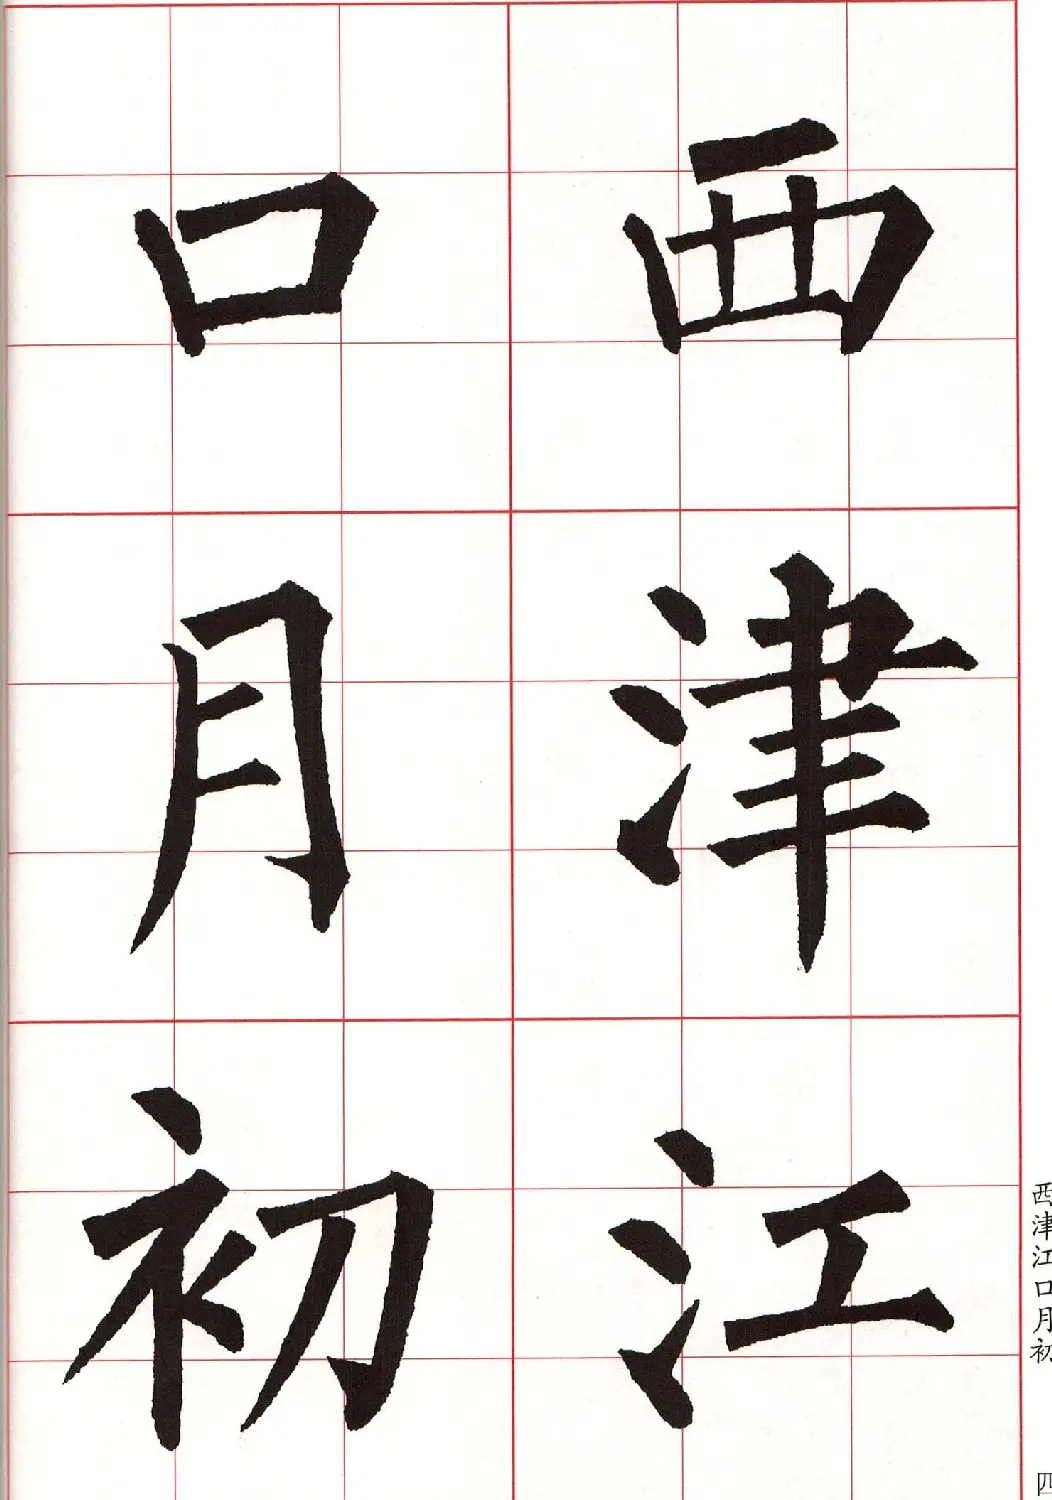 西津江
口月初
西津江口月初
四